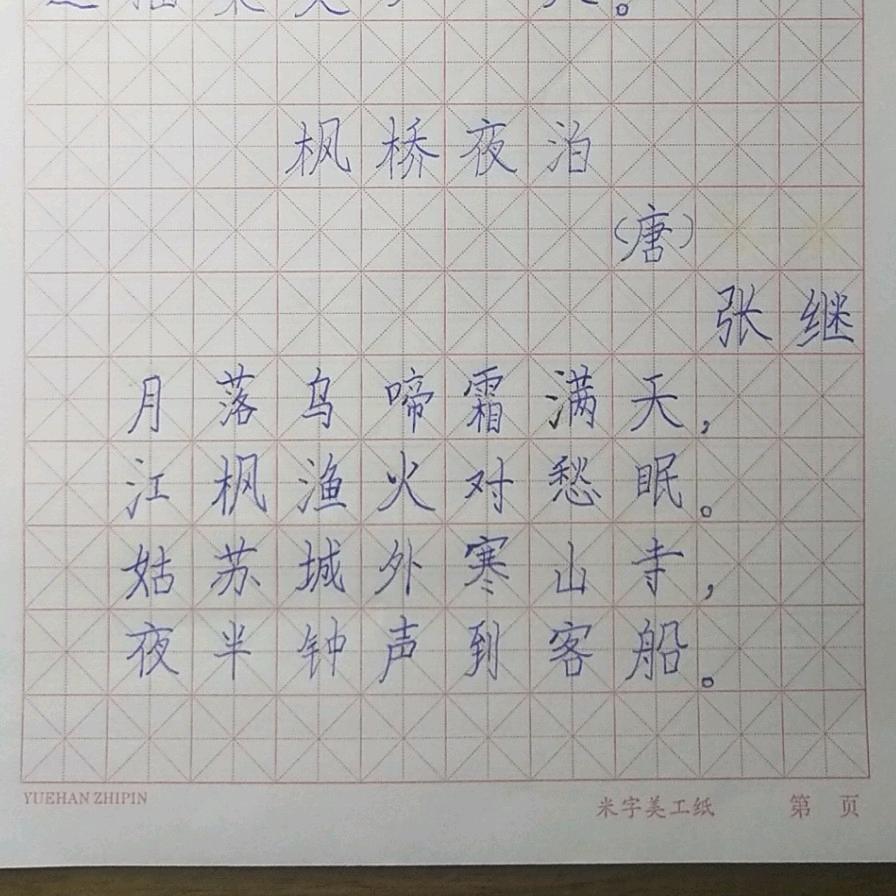 枫桥夜泊
(唐)
张继
月落乌啼霜满天,
江枫渔火对愁眠。
姑苏城外寒山寺,
夜半钟声到客船。
YUEHAN ZHIPIN
米字美工纸
第 页